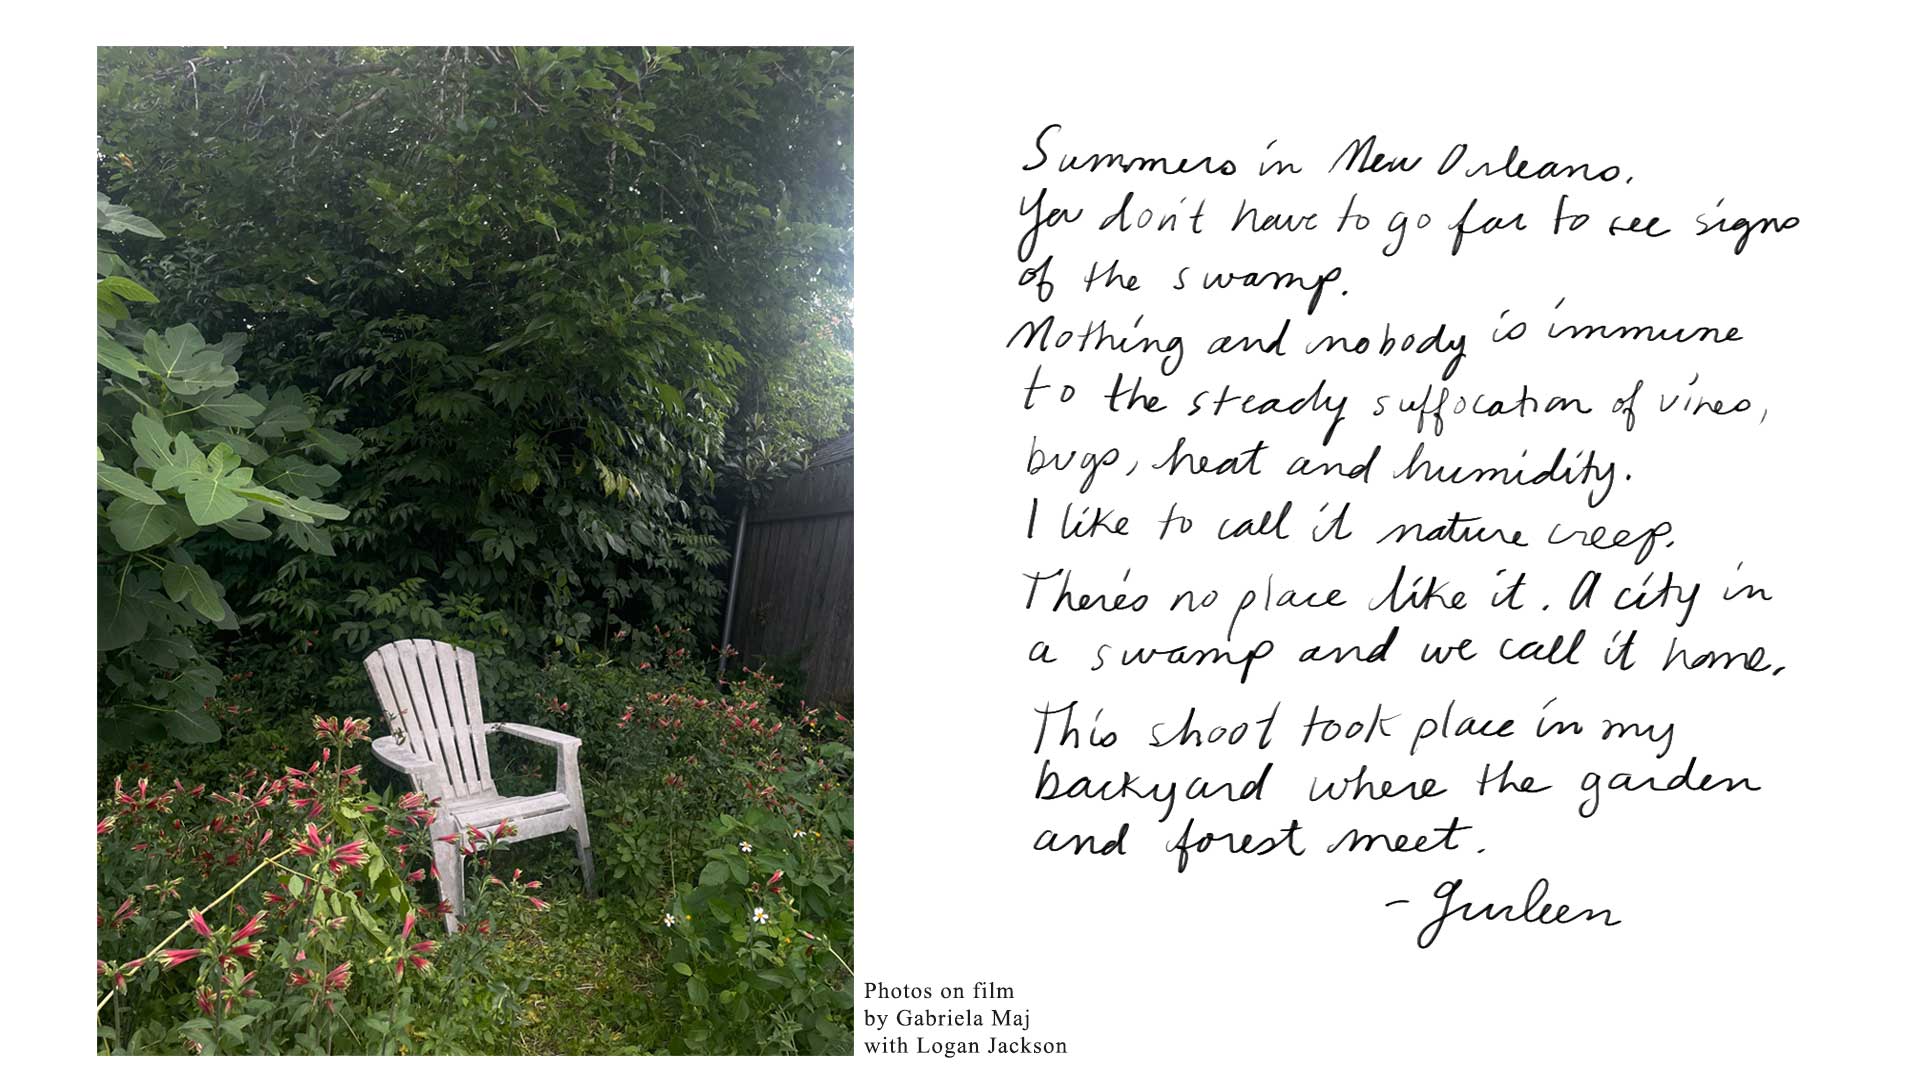 Summers in New Orleans.
You don't have to go far to see signs
of the swamp.
Nothing and nobody is immune
to the steady suffocation of vines,
bugs, heat and humidity.
I like to call it nature creep.
There's no place like it. A city in
a swamp and we call it home.
This shoot took place in my
backyard where the garden
and forest meet.
- Gurleen
Photos on film
by Gabriela Maj
with Logan Jackson